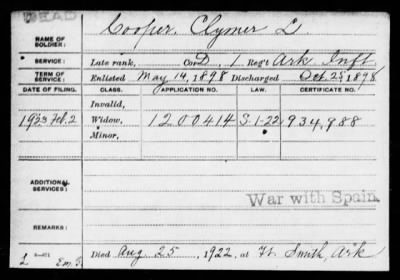 DEAD
NAME OF SOLDIER: Cooper, Clymer L.
SERVICE: Late rank, Co. D, 1 Reg't Ark Inft
TERM OF SERVICE: Enlisted May 14, 1898 Discharged Oct. 25, 1898
DATE OF FILING. CLASS. APPLICATION NO. LAW. CERTIFICATE NO.
Invalid,
1923 Feb. 2 Widow, 1200414 S.1-22, 934,988
Minor,
ADDITIONAL SERVICES:
War with Spain.
REMARKS:
Died Aug 25, 1922, at Ft. Smith, Ark